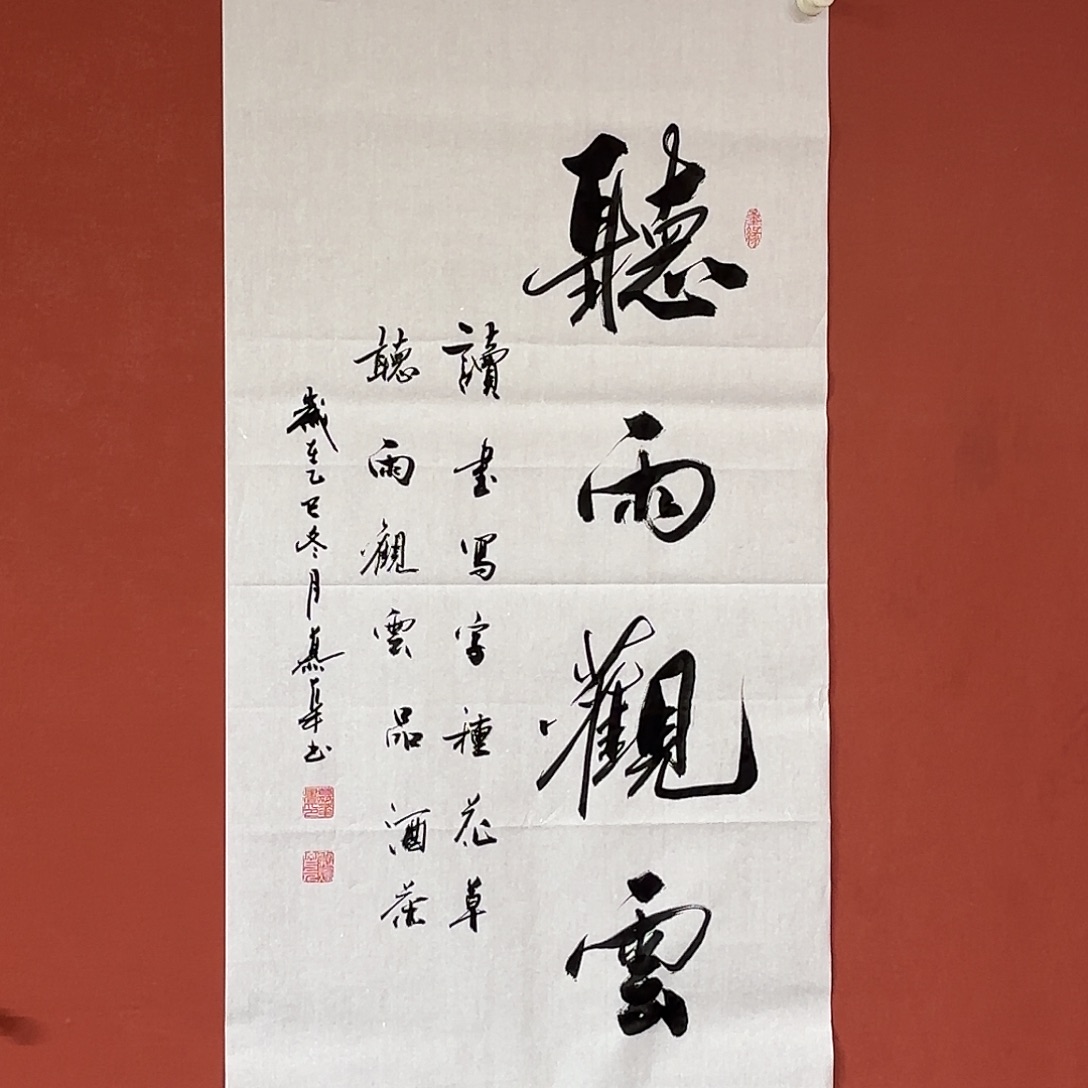 聽雨觀雲
讀書寫字種花草
聽雨觀雲品酒茶
歲在乙巳冬月慕章書